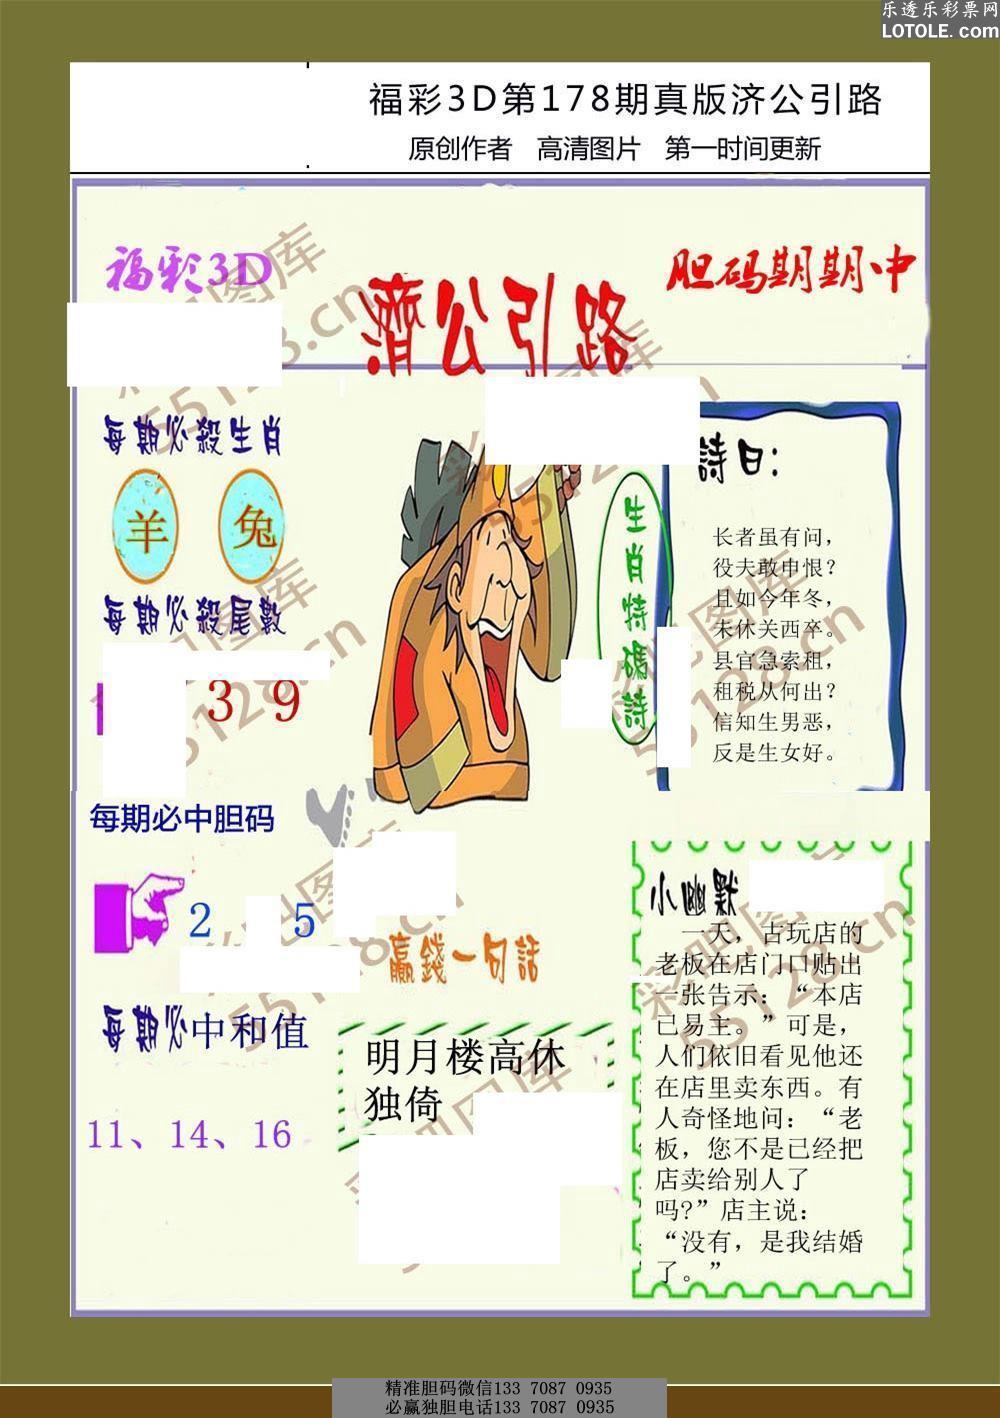 乐透乐彩票网
LOTOLE.com
福彩3D第178期真版济公引路
原创作者 高清图片 第一时间更新
福彩3D
濟公引路
胆码期期中
每期必殺生肖
羊 兔
每期必殺尾數
3 9
每期必中胆码
2 5
每期必中和值
11、14、16
生肖特碼詩
詩曰:
长者虽有问，
役夫敢申恨？
且如今年冬，
未休关西卒。
县官急索租，
租税从何出？
信知生男恶，
反是生女好。
赢錢一句話
明月楼高休
独倚
小幽默
一天，古玩店的
老板在店门口贴出
一张告示：“本店
已易主。”可是，
人们依旧看见他还
在店里卖东西。有
人奇怪地问：“老
板，您不是已经把
店卖给别人了
吗?”店主说：
“没有，是我结婚
了。”
彩吧图库
55128.cn
精准胆码微信133 7087 0935
必赢独胆电话133 7087 0935